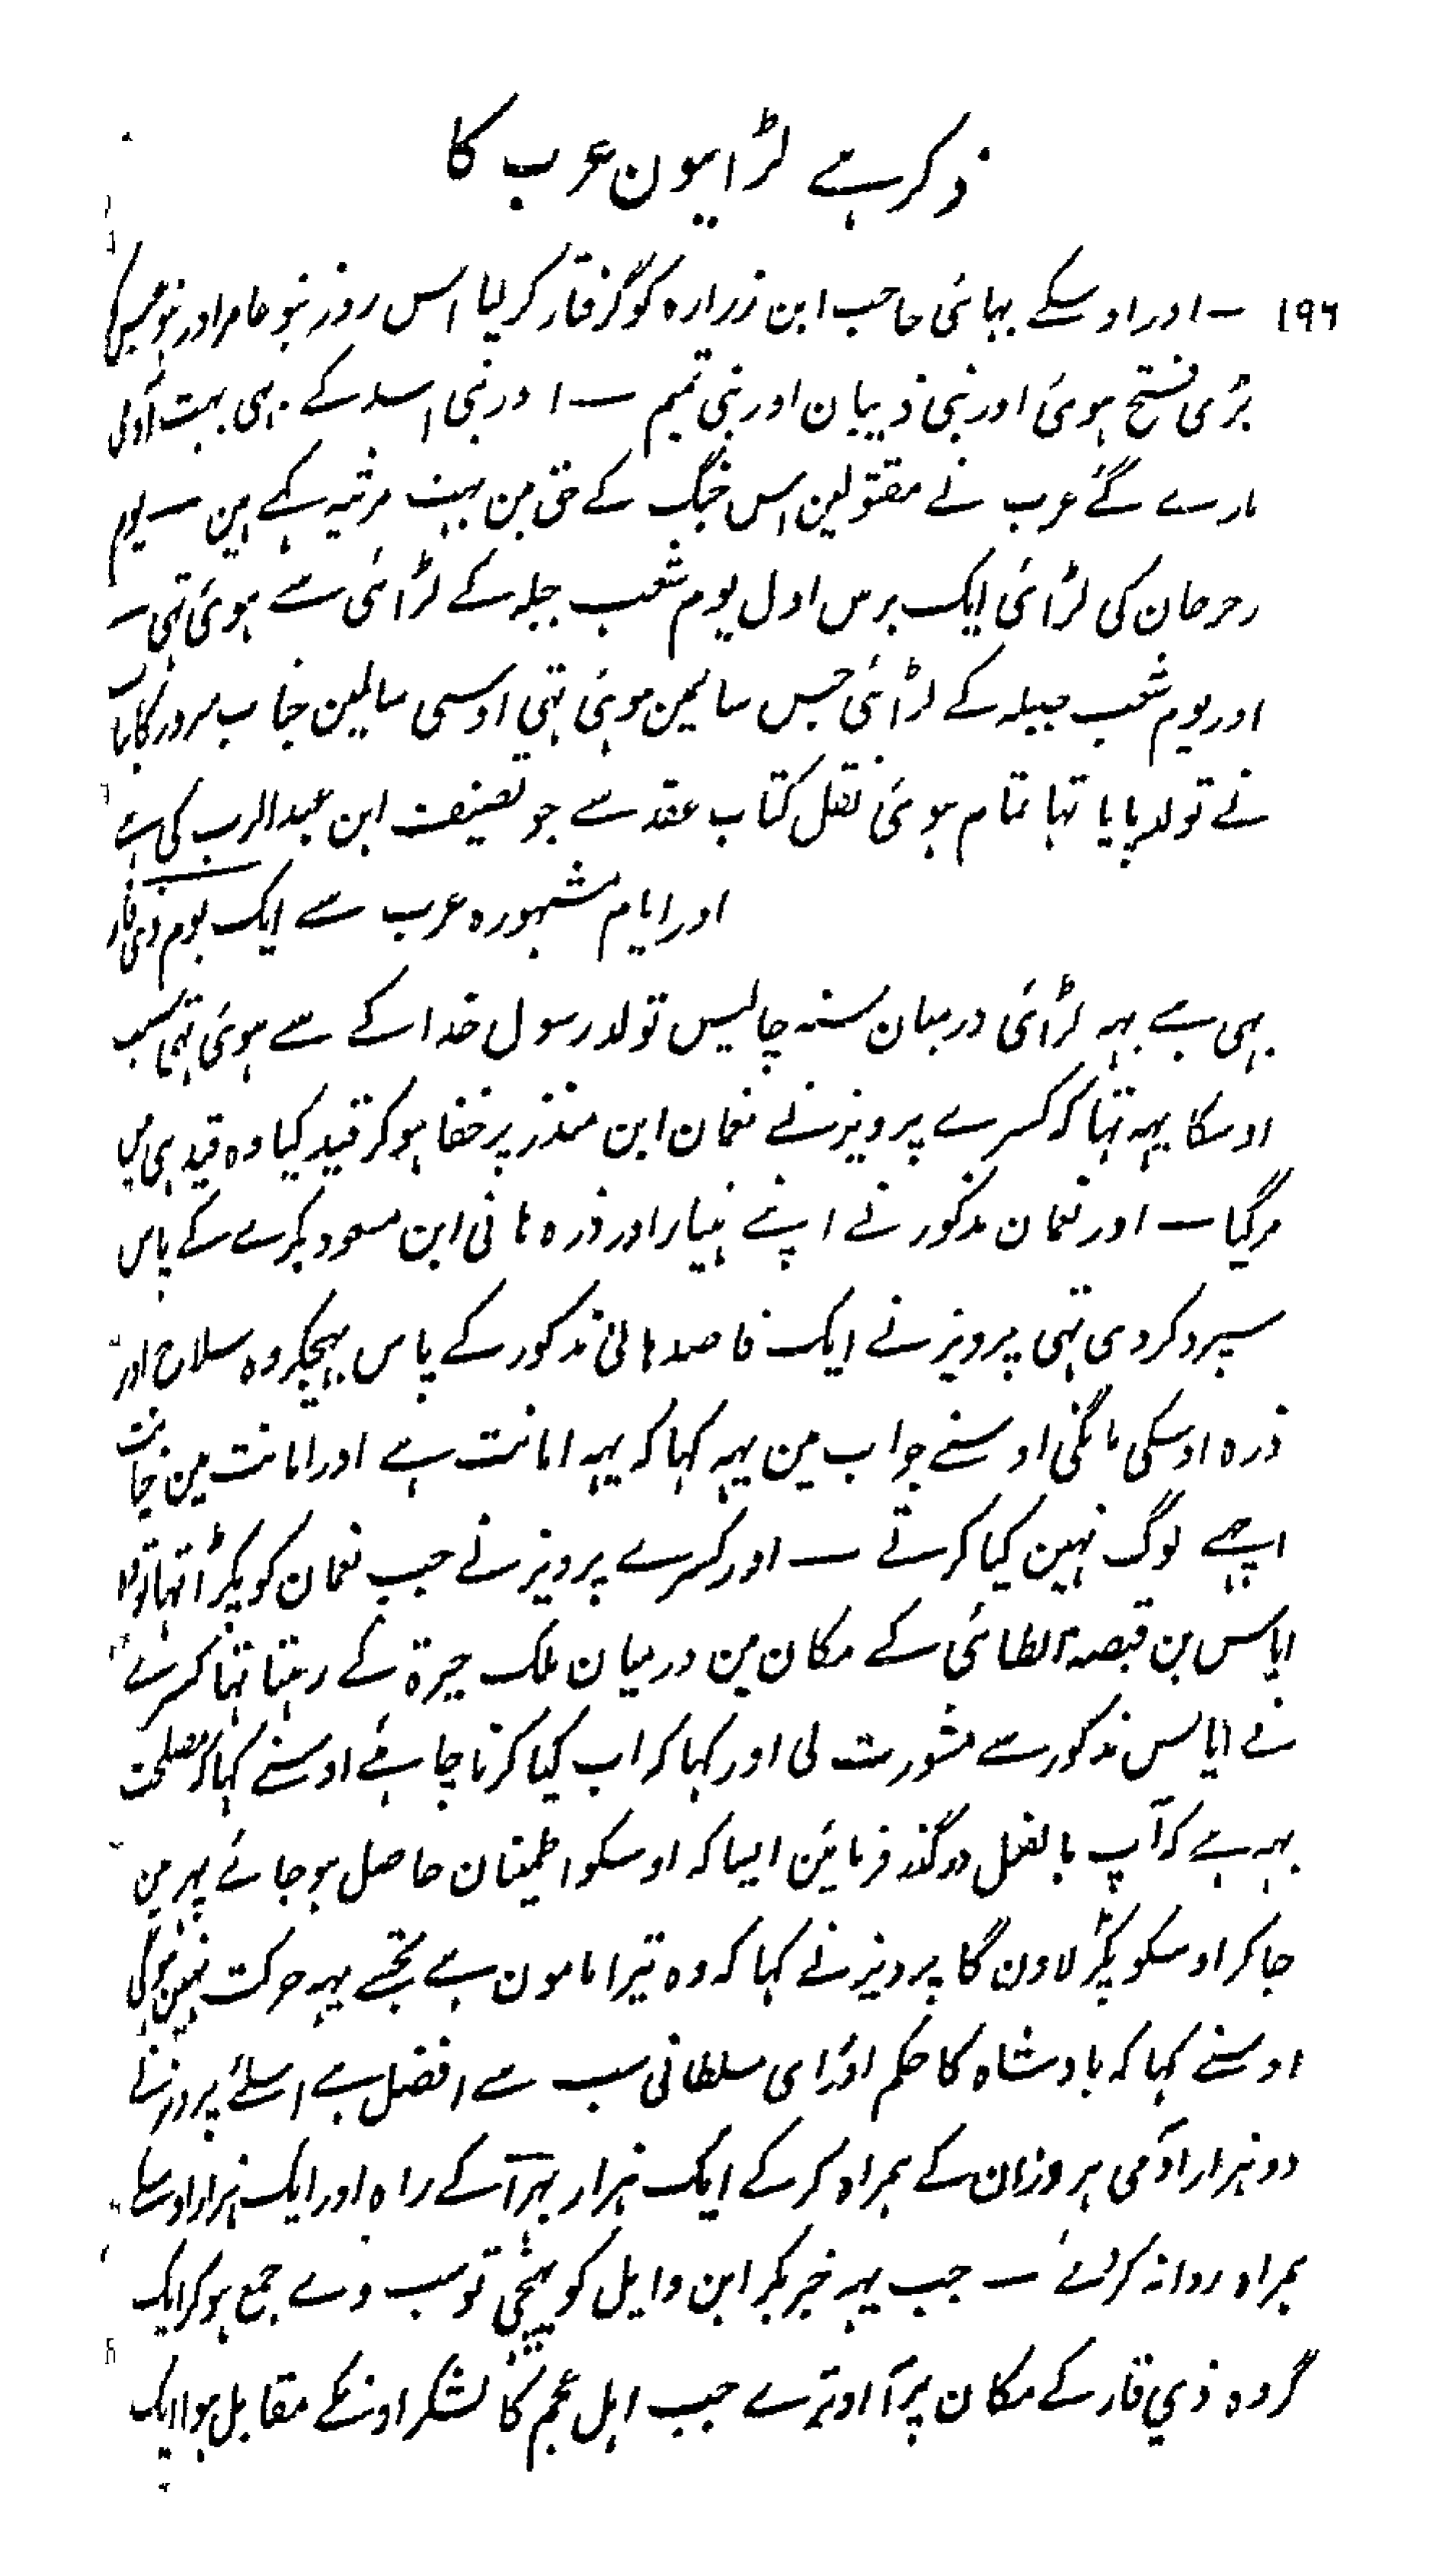 ذکر ہے لڑایون عرب کا
۱۹۶ ــ اور اوسکے بہائی حاجب ابن زرارہ کو گرفتار کر لیا اس روز بنو عامر اور بنو عبس کی
بڑی فتح ہوئی اور بنی ذبیان اور بنی تمیم ــ اور بنی اسد کے بہی بہت آدمی
مارے گئے عرب نے مقتولین اس جنگ کے حق من بہت مرثیہ کہے ہین ــ یوم
رحرحان کی لڑائی ایک برس اول یوم شعب جبلہ کے لڑائی سے ہوئی تہی ــ
اور یوم شعب جبیلہ کے لڑائی جس سالمین ہوئی تہی اوسی سالمین جناب سرور کاینات
نے تولد پایا تہا تمام ہوئی نقل کتاب عقد سے جو تصنیف ابن عبد الرب کی ہے
اور ایام مشہورہ عرب سے ایک یوم ذی قار
بہی ہے یہہ لڑائی درمیان سنہ چالیس تولد رسول خدا کے سے ہوئی تہی سبب
اوسکا یہہ تہا کہ کسرے پرویز نے نعمان ابن منذر پر خفا ہو کر قید کیا وہ قید ہی مین
مر گیا ــ اور نعمان مذکور نے اپنے ہتیار اور ذرہ ہانی ابن مسعود بکرے کے پاس
سپرد کر دی تہی پرویز نے ایک قاصد ہانی مذکور کے پاس بہیجکر وہ سلاح اور
ذرہ اوسکی مانگی اوسنے جواب من یہہ کہا کہ یہہ امانت ہے اور امانت مین خیانت
اچہے لوگ نہین کیا کرتے ــ اور کسرے پرویز نے جب نعمان کو پکڑا تہا تو
ایاس بن قبصۃ الطائی کے مکان مین درمیان ملک حیرۃ کے رہتا تہا کسرے
نے ایاس مذکور سے مشورت لی اور کہا کہ اب کیا کرنا چاہئے اوسنے کہا کہ مصلحت
یہہ ہے کہ آپ بالفعل درگذر فرمائین ایسا کہ اوسکو اطمینان حاصل ہو جائے پہر مین
جا کر اوسکو پکڑ لاون گا پرویز نے کہا کہ وہ تیرا مامون ہے تجہسے یہہ حرکت نہین ہوگی
اوسنے کہا کہ بادشاہ کا حکم اور رای سلطانی سب سے افضل ہے اسلئے پرویز نے
دو ہزار آدمی ہرمزان کے ہمراہ کر کے ایک ہزار بہرآ کے راہ اور ایک ہزار اوسکے
ہمراہ روانہ کرلئے ــ جب یہہ خبر بکر ابن وایل کو پہنچی تو سب وے جمع ہو کر ایک
گروہ ذي قار کے مکان پر آ اوترے جب اہل عجم کا لشکر اونکے مقابل ہوا ایک